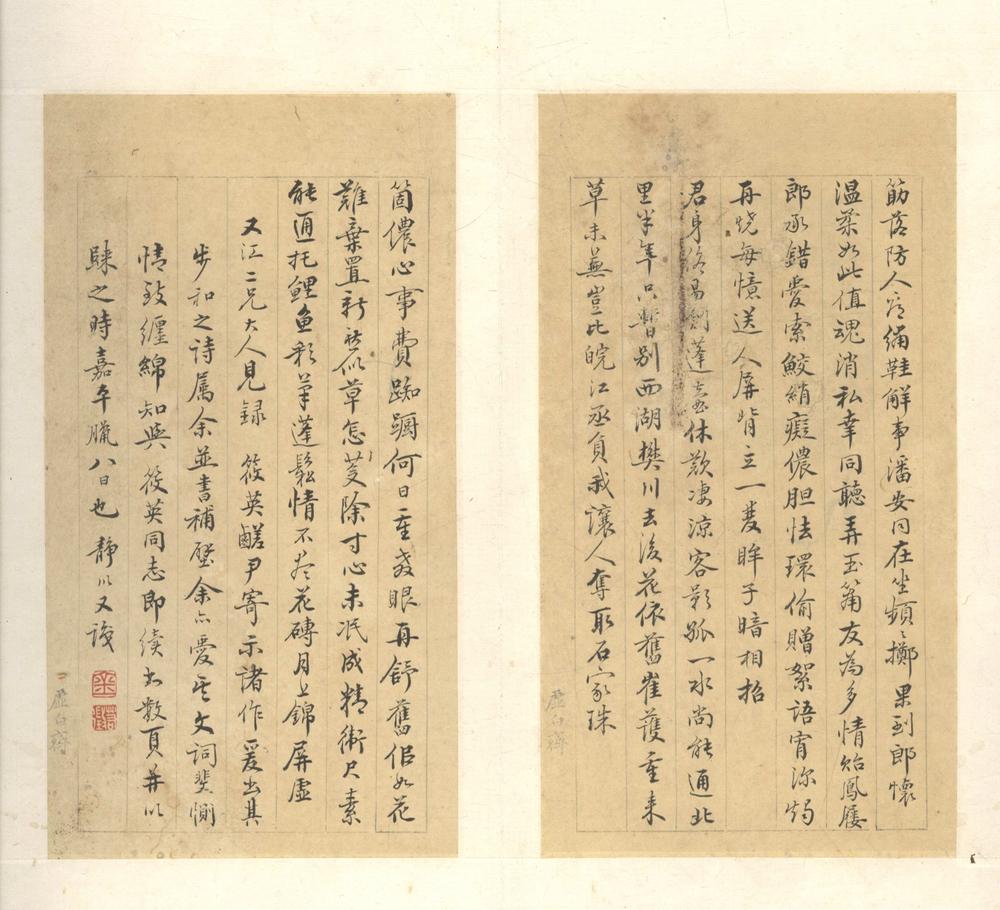 筯落防人府繡鞋解事潘安同在坐頻頻擲果到郎懷
溫柔如此值魂消私幸同聽弄玉簫友為多情貽鳳屐
郎承錯愛索鮫綃癡儂胆怯環偷贈絮語宵深燭
再燒每憶送人屏背立一雙眸子暗相招
君身終易蓬壺休歎凄涼客影孤一水尚能通北
里半年只暫別西湖樊川去後花依舊崔護重來
草未蕪豈比皖江丞負我讓人奪取石家珠
箇儂心事費踟躕何日重教眼再舒舊侶如花
難棄置新草怎芟除寸心未泯成精衛尺素
能通托鯉魚彩筆蓬鬆情不盡花磚月上錦屏虛
又江二兄大人見錄 筱英鹺尹寄示諸作爰出其
步和之詩屬余並書補壁余亦愛其文詞斐惻
情致纏綿知與筱英同志即續書數頁并以
歸之時嘉平臘八日也靜以又識
虛白齋
虛白齋